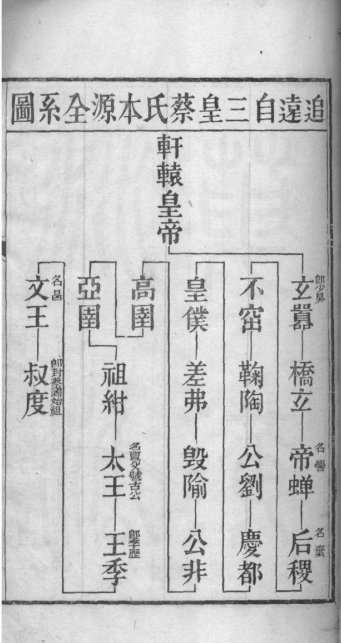 追遠自三皇蔡氏本源全系圖
軒轅皇帝
玄囂
即少昊
橋玄
帝蝉
名嚳
后稷
名棄
不窋
鞠陶
公劉
慶都
皇僕
差弗
毀隃
公非
高圉
亞圉
祖紺
太王
名亶父號古公
王季
即季歷
文王
名昌
叔度
即封蔡國始祖